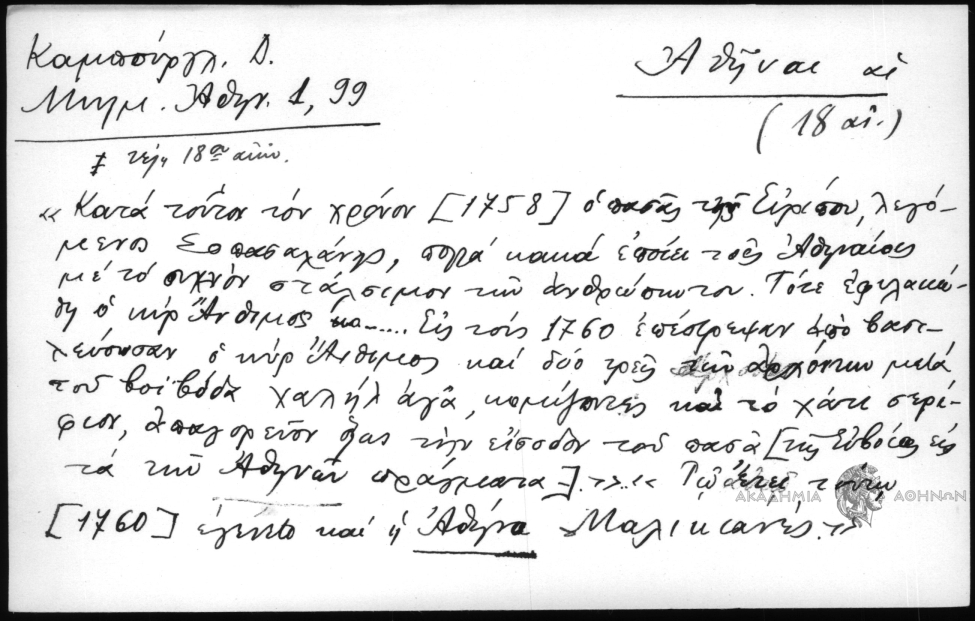 Καμπούργλ. Δ.
Μνημ. Ἀθην. 1, 99
Ἀθῆναι αἱ
(18 αἰ.)
τέλη 18ου αἰῶν.
«Κατά τοῦτον τόν χρόνον [1758] ὁ πασᾶς τῆς Εὐρίπου, λεγό-
μενος , πολλά κακά ἐποίει τοῖς Ἀθηναίοις
μέ τό συχνόν στάλσιμον τῶν ἀνθρώπων του. Τότε ἐφυλακώ-
θη ὁ κύρ Ἄνθιμος ...... Εἰς τούς 1760 ἐπέστρεψαν ἀπό βασι-
λεύουσαν ὁ κύρ Ἄνθιμος καί δύο τρεῖς τῶν ἀρχόντων μετά
τοῦ βοϊβόδα χαλήλ ἀγᾶ, κομίζοντες καί τό χάτι σερί-
φιον, ἀπαγορεῦον ὅλως τήν εἴσοδον τοῦ πασᾶ [τῆς Εὐβοίας εἰς
τά τῶν Ἀθηνῶν πράγματα]..». « Τῷ ἔτει τούτῳ
[1760] ἐγένετο καί ἡ Ἀθήνα Μαλικιανές.»
ΑΚΑΔΗΜΙΑ ΑΘΗΝΩΝ